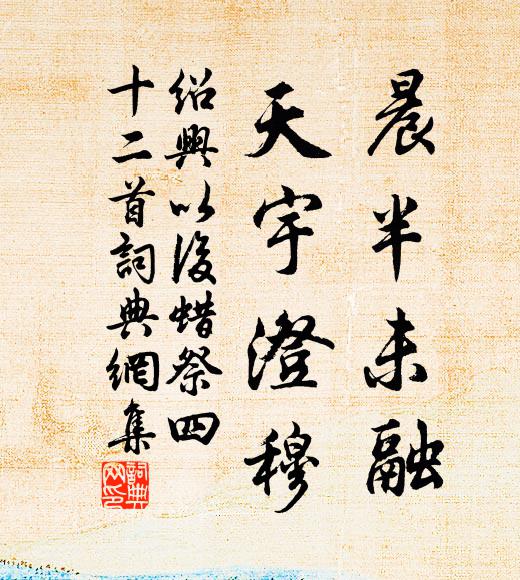 晨半未融
天宇澄穆
紹興以後蜡祭四
十二首詞典網集
詞典
网印